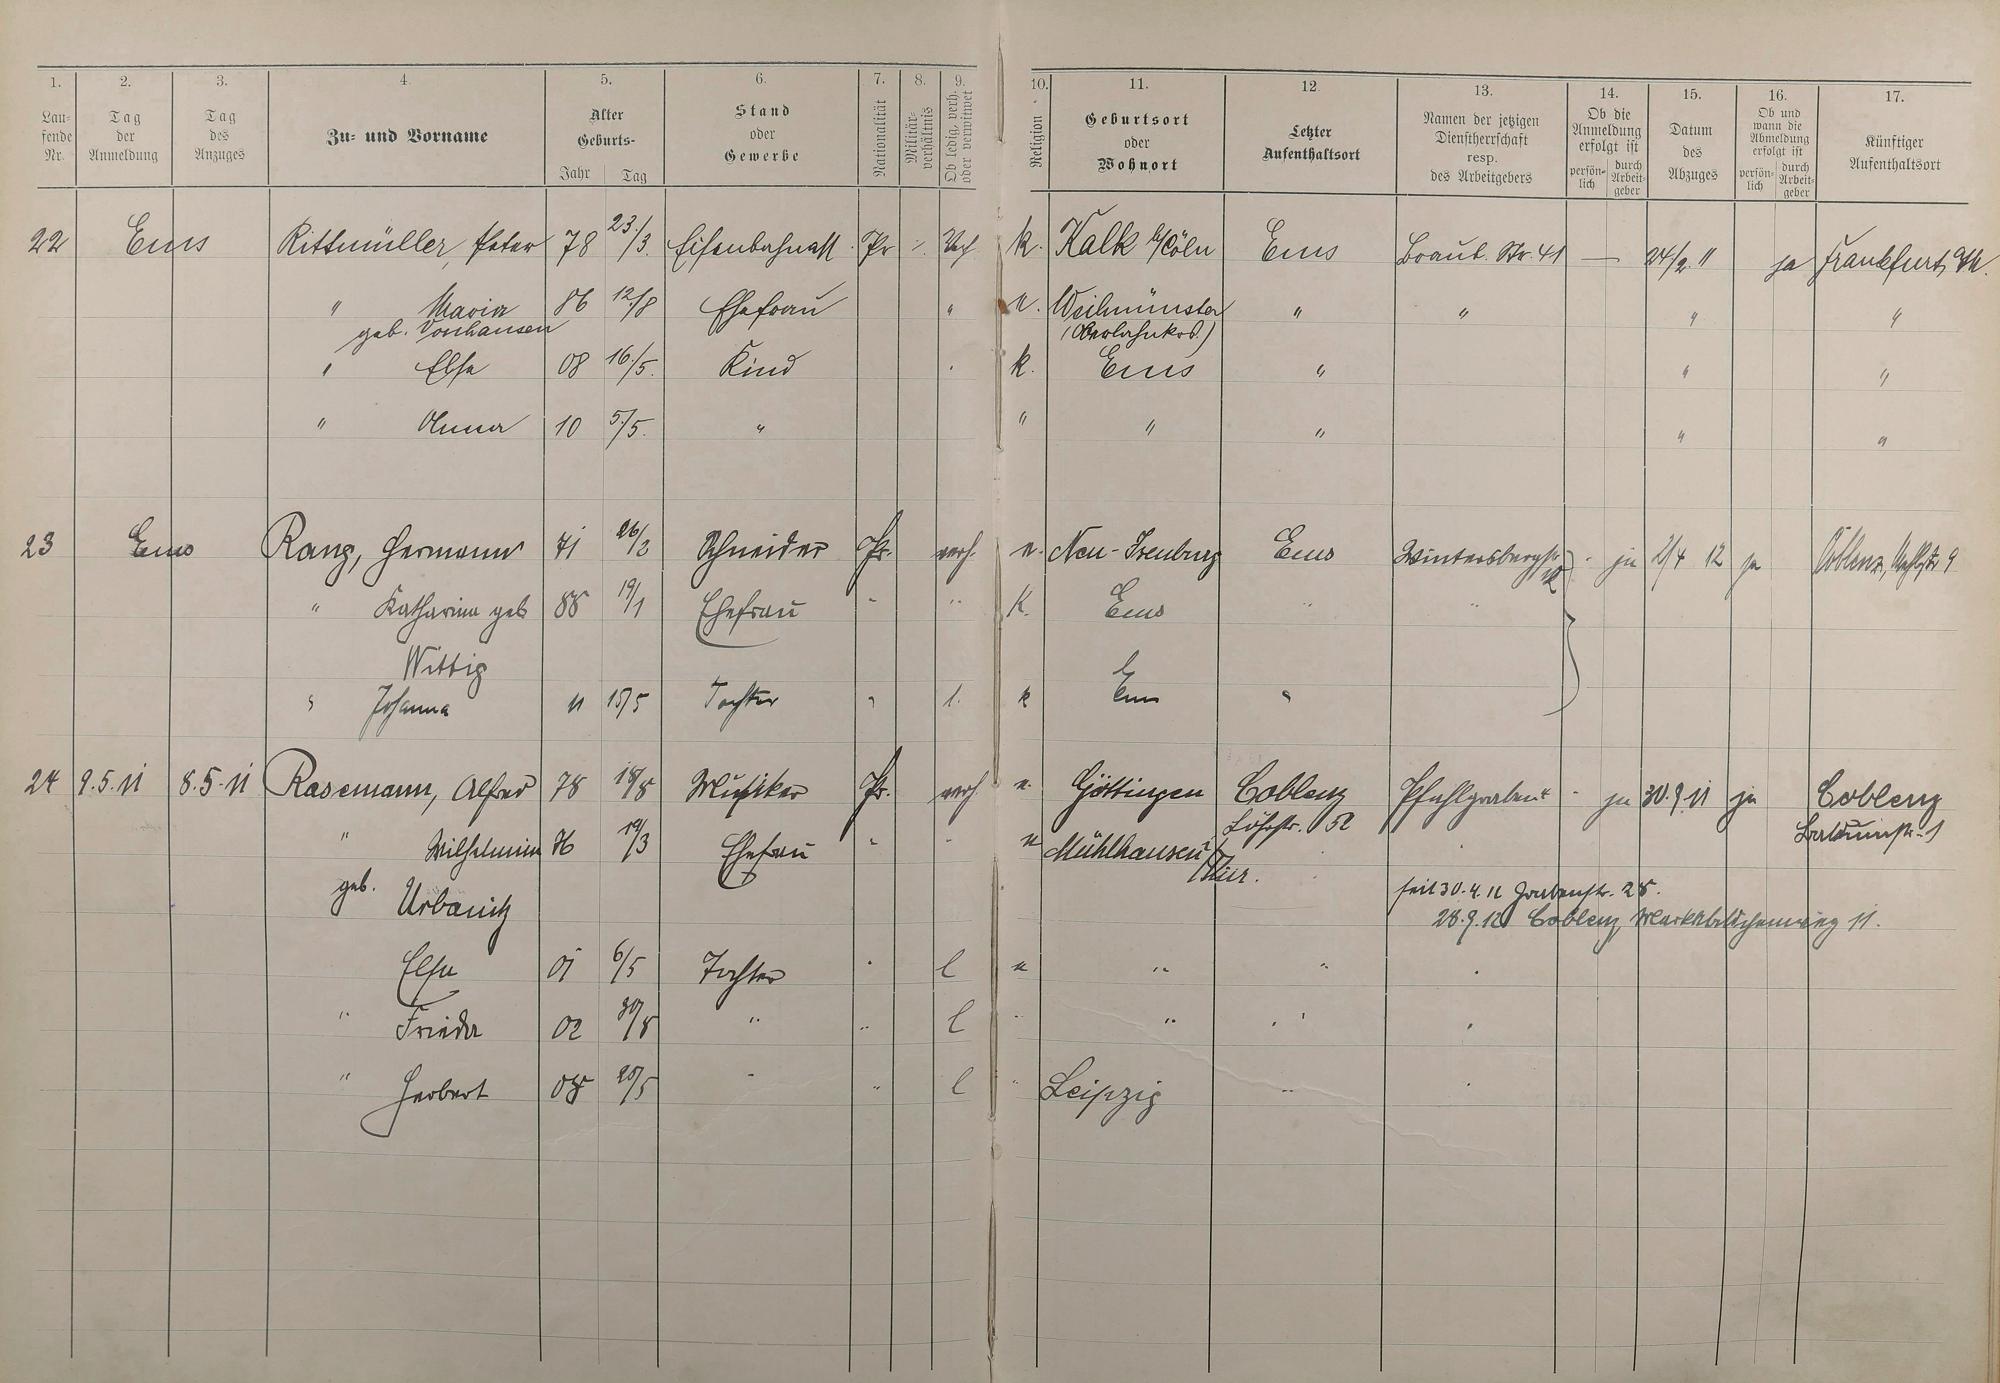 1. 2. 3. 4. 5. 6. 7. 8. 9. 10. 11. 12. 13. 14. 15. 16. 17.
Laufende Nr.
Tag der Anmeldung
Tag des Anzuges
Zu- und Vorname
Alter
Geburts-
Jahr Tag
Stand oder Gewerbe
Nationalität
Militärverhältnis
Ob ledig, verh. oder verwitwet
Religion
Geburtsort oder Wohnort
Letzter Aufenthaltsort
Namen der jetzigen Dienstherrschaft resp. des Arbeitgebers
Ob die Anmeldung erfolgt ist
persönlich durch Arbeitgeber
Datum des Abzuges
Ob und wann die Abmeldung erfolgt ist
persönlich durch Arbeitgeber
Künftiger Aufenthaltsort
22 Ems Rittmüller, Peter 78 23./3. Pr Verh k. Kalk b/Cöln Ems Braub. Str. 41 — 24/2 11 ja Frankfurt a/M.
" Maria 86 12./8 Ehefrau " Weilmünster " " " "
geb. Vonhausen (Oberlahnkrs.)
" Else 08 16./5. Kind k. Ems " " "
" Anna 10 5./5. " " " " " "
23 Ems Rang, Hermann 71 26/2 Schneider Pr. verh. Neu-Isenburg Ems ja 2/4 12 ja Coblenz, 9
" Katharina geb 88 19/1 Ehefrau " " K. Ems " "
Wittig
" Johanna 11 15/5 Tochter " l. k Ems "
24 9.5.11 8.5.11 Rasemann, Alfred 78 18/8 Musiker Pr. verh Göttingen Coblenz ja 30.9.11 ja Coblenz
Löhrstr. 52
" Wilhelmine 76 19/3 Ehefrau " " Mühlhausen i/Thür.
geb.
Urbanitz
seit 30.4.12 28.
28.9.12 Coblenz 11.
Else 01 6/5 Tochter " l " "
" Frieda 02 30/8 " " l " "
" Herbert 08 20/5 " " l " Leipzig "